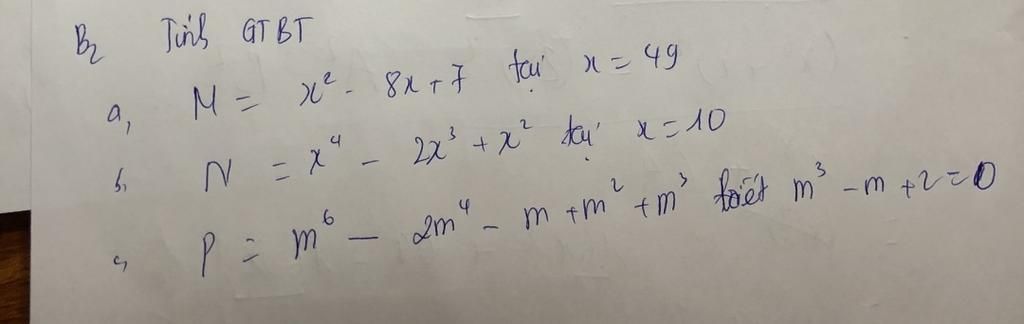 B2 Tính GTBT
a, M = x² - 8x + 7 tại x = 49
b, N = x⁴ - 2x³ + x² tại x = 10
c, P = m⁶ - 2m⁴ - m + m² + m³ biết m³ - m + 2 = 0